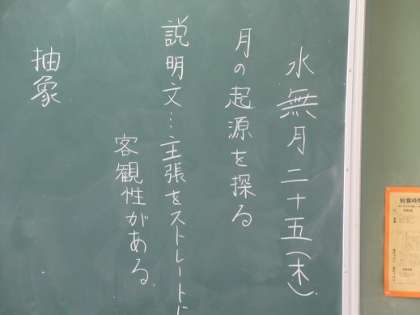 水無月二十五(木)
月の起源を探る
説明文…主張をストレートに
客観性がある
抽象